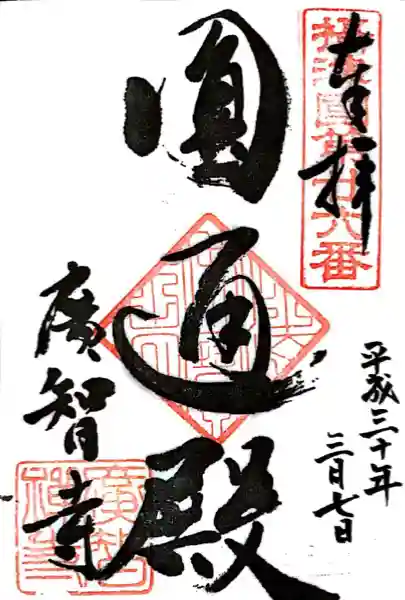 奉拝
摂津国第廿六番
平成三十年
三月七日
圓通殿
廣智寺